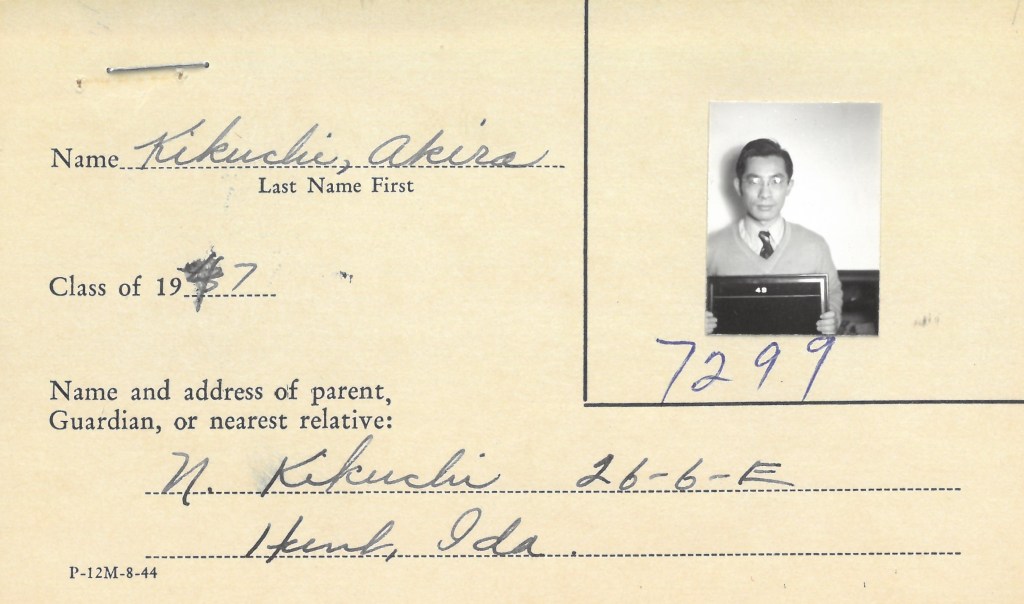 Name Kikuchi, Akira
Last Name First
Class of 1947
49
7299
Name and address of parent,
Guardian, or nearest relative:
N. Kikuchi 26-6-E
Hunt, Ida.
P-12M-8-44